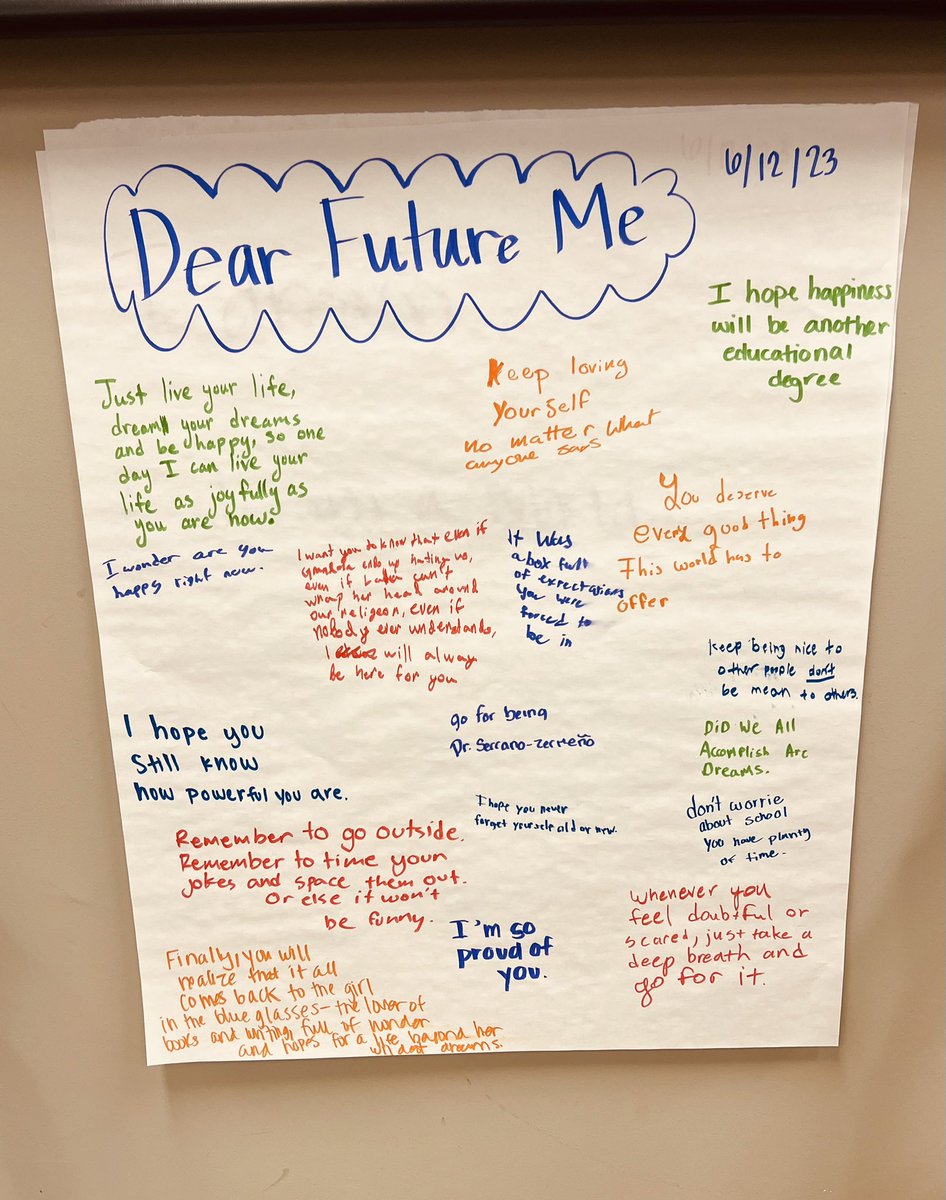 6/12/23
Dear Future Me
I hope happiness
will be another
educational
degree
Just live your life,
dream your dreams
and be happy, so one
day I can live your
life as joyfully as
you are now.
Keep loving
Yourself
no matter what
anyone says
You deserve
every good thing
This world has to
offer
I wonder are you
happy right now.
I want you to know that even if
ends up hurting us,
even if can't
wrap her head around
our religeon, even if
nobody ever understands,
I will always
be here for you
It was
a box full
of expectations
you were
forced to
be in
keep being nice to
other people don't
be mean to others.
I hope you
Still know
how powerful you are.
go for being
Dr. Serrano-Zermeño
DiD We All
Accomplish Arc
Dreams.
I hope you never
forget yourself old or new.
don't worrie
about school
you have planty
of time.
Remember to go outside.
Remember to time your
jokes and space them out.
Or else it won't
be funny.
I'm so
proud of
you.
whenever you
feel doubtful or
scared, just take a
deep breath and
go for it.
Finally, you will
realize that it all
comes back to the girl
in the blue glasses-the lover of
books and writing, full of wonder
and hopes for a life beyond her
wildest dreams.